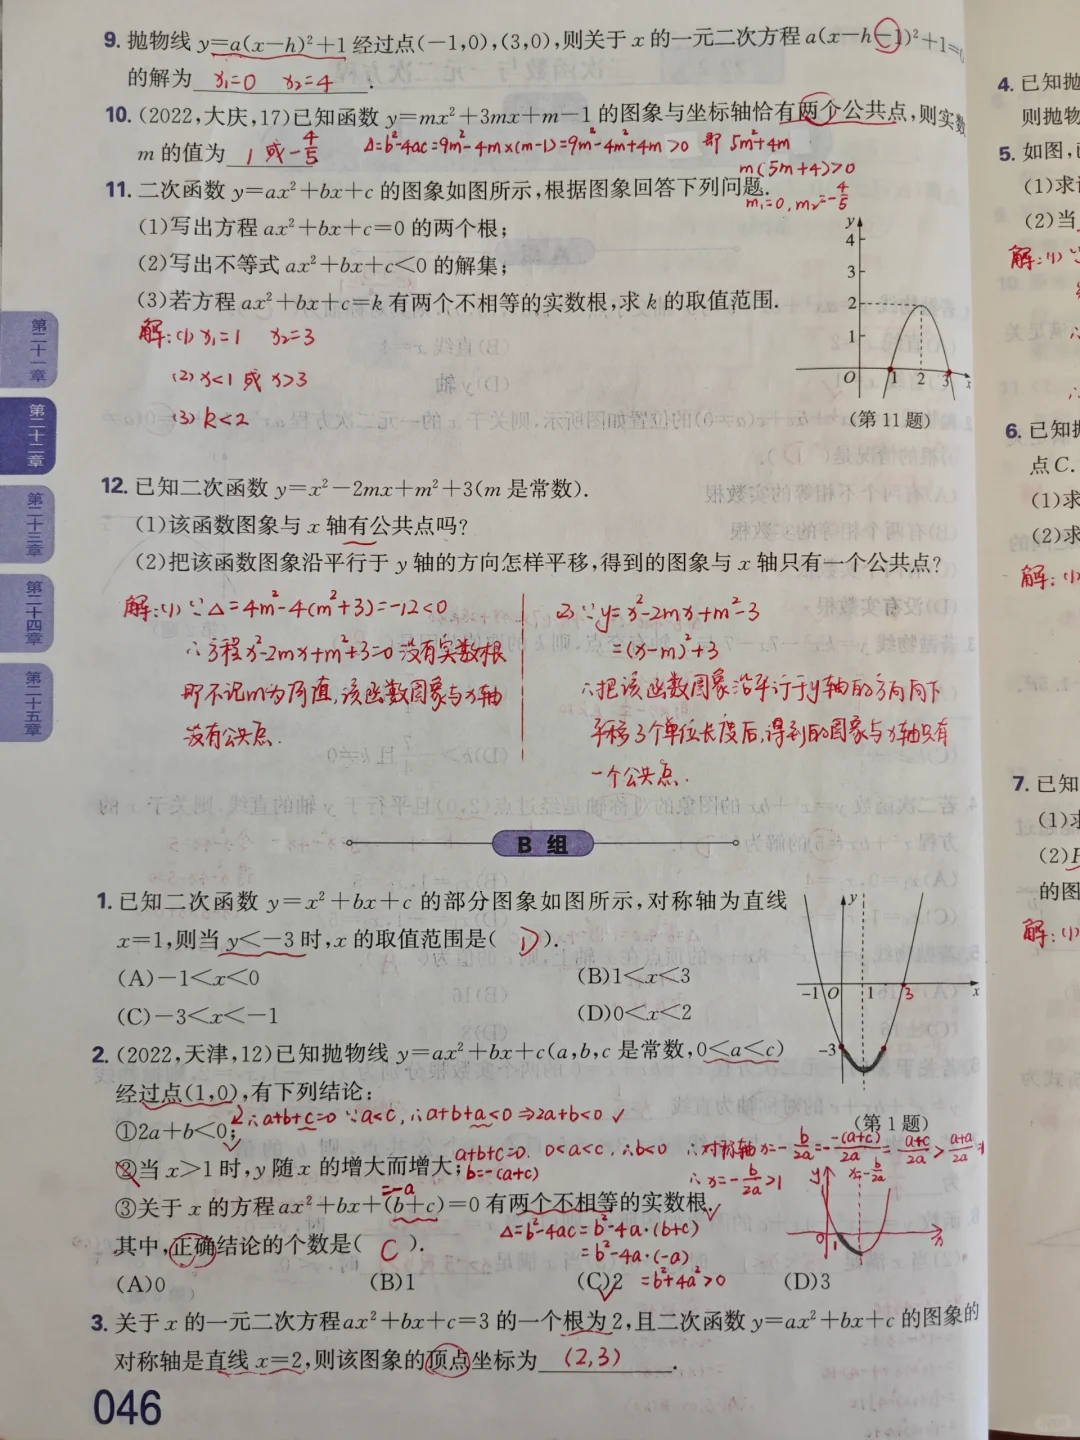 9. 抛物线 y=a(x-h)²+1 经过点(-1,0),(3,0),则关于 x 的一元二次方程 a(x-h-1)²+1=0
的解为 x₁=0 x₂=4 .
10. (2022,大庆,17)已知函数 y=mx²+3mx+m-1 的图象与坐标轴恰有两个公共点,则实数
m 的值为 1 或 -4/5
Δ=b²-4ac=9m²-4m×(m-1)=9m²-4m²+4m>0 即 5m²+4m
m(5m+4)>0
m₁=0, m₂=-4/5
11. 二次函数 y=ax²+bx+c 的图象如图所示,根据图象回答下列问题.
(1)写出方程 ax²+bx+c=0 的两个根;
(2)写出不等式 ax²+bx+c<0 的解集;
(3)若方程 ax²+bx+c=k 有两个不相等的实数根,求 k 的取值范围.
解:(1) x₁=1 x₂=3
(2) x<1 或 x>3
(3) k<2
y
4
3
2
1
O 1 2 3 x
(第 11 题)
12. 已知二次函数 y=x²-2mx+m²+3(m 是常数).
(1)该函数图象与 x 轴有公共点吗?
(2)把该函数图象沿平行于 y 轴的方向怎样平移,得到的图象与 x 轴只有一个公共点?
解:(1) ∵Δ=4m²-4(m²+3)=-12<0
∴方程x²-2mx+m²+3=0没有实数根
即不论m为何值,该函数图象与x轴
没有公共点.
② ∵y=x²-2mx+m²-3
=(x-m)²+3
∴把该函数图象沿平行于y轴的方向向下
平移3个单位长度后,得到的图象与x轴只有
一个公共点.
B 组
1. 已知二次函数 y=x²+bx+c 的部分图象如图所示,对称轴为直线
x=1,则当 y<-3 时,x 的取值范围是( D ).
(A)-1<x<0 (B)1<x<3
(C)-3<x<-1 (D)0<x<2
y
-1 O 1 3 x
-3
(第 1 题)
2. (2022,天津,12)已知抛物线 y=ax²+bx+c(a,b,c 是常数,0<a<c)
经过点(1,0),有下列结论:
①2a+b<0; ∴a+b+c=0 ∵a<c, ∴a+b+a<0⇒2a+b<0 ✓
②当 x>1 时,y 随 x 的增大而增大; a+b+c=0. 0<a<c, ∴b<0 ∴对称轴x=-b/2a=-(-(a+c))/2a=(a+c)/2a>(a+a)/2a
b=-(a+c) ∴x=-b/2a>1
y x=-b/2a
=-a
③关于 x 的方程 ax²+bx+(b+c)=0 有两个不相等的实数根. ✓
Δ=b²-4ac=b²-4a·(b+c)
其中,正确结论的个数是( C ). =b²-4a·(-a)
0 1 x
(A)0 (B)1 (C)2 =b²+4a²>0 (D)3
3. 关于 x 的一元二次方程ax²+bx+c=3 的一个根为 2,且二次函数 y=ax²+bx+c 的图象的
对称轴是直线 x=2,则该图象的顶点坐标为 (2,3) .
046
第二十一章
第二十二章
第二十三章
第二十四章
第二十五章
4. 已知抛
则抛物
5. 如图,
(1)求
(2)当
解:(1)
6. 已知抛
点C.
(1)求
(2)求
解:(1)
7. 已知
(1)求
(2)
的图
解:(1)